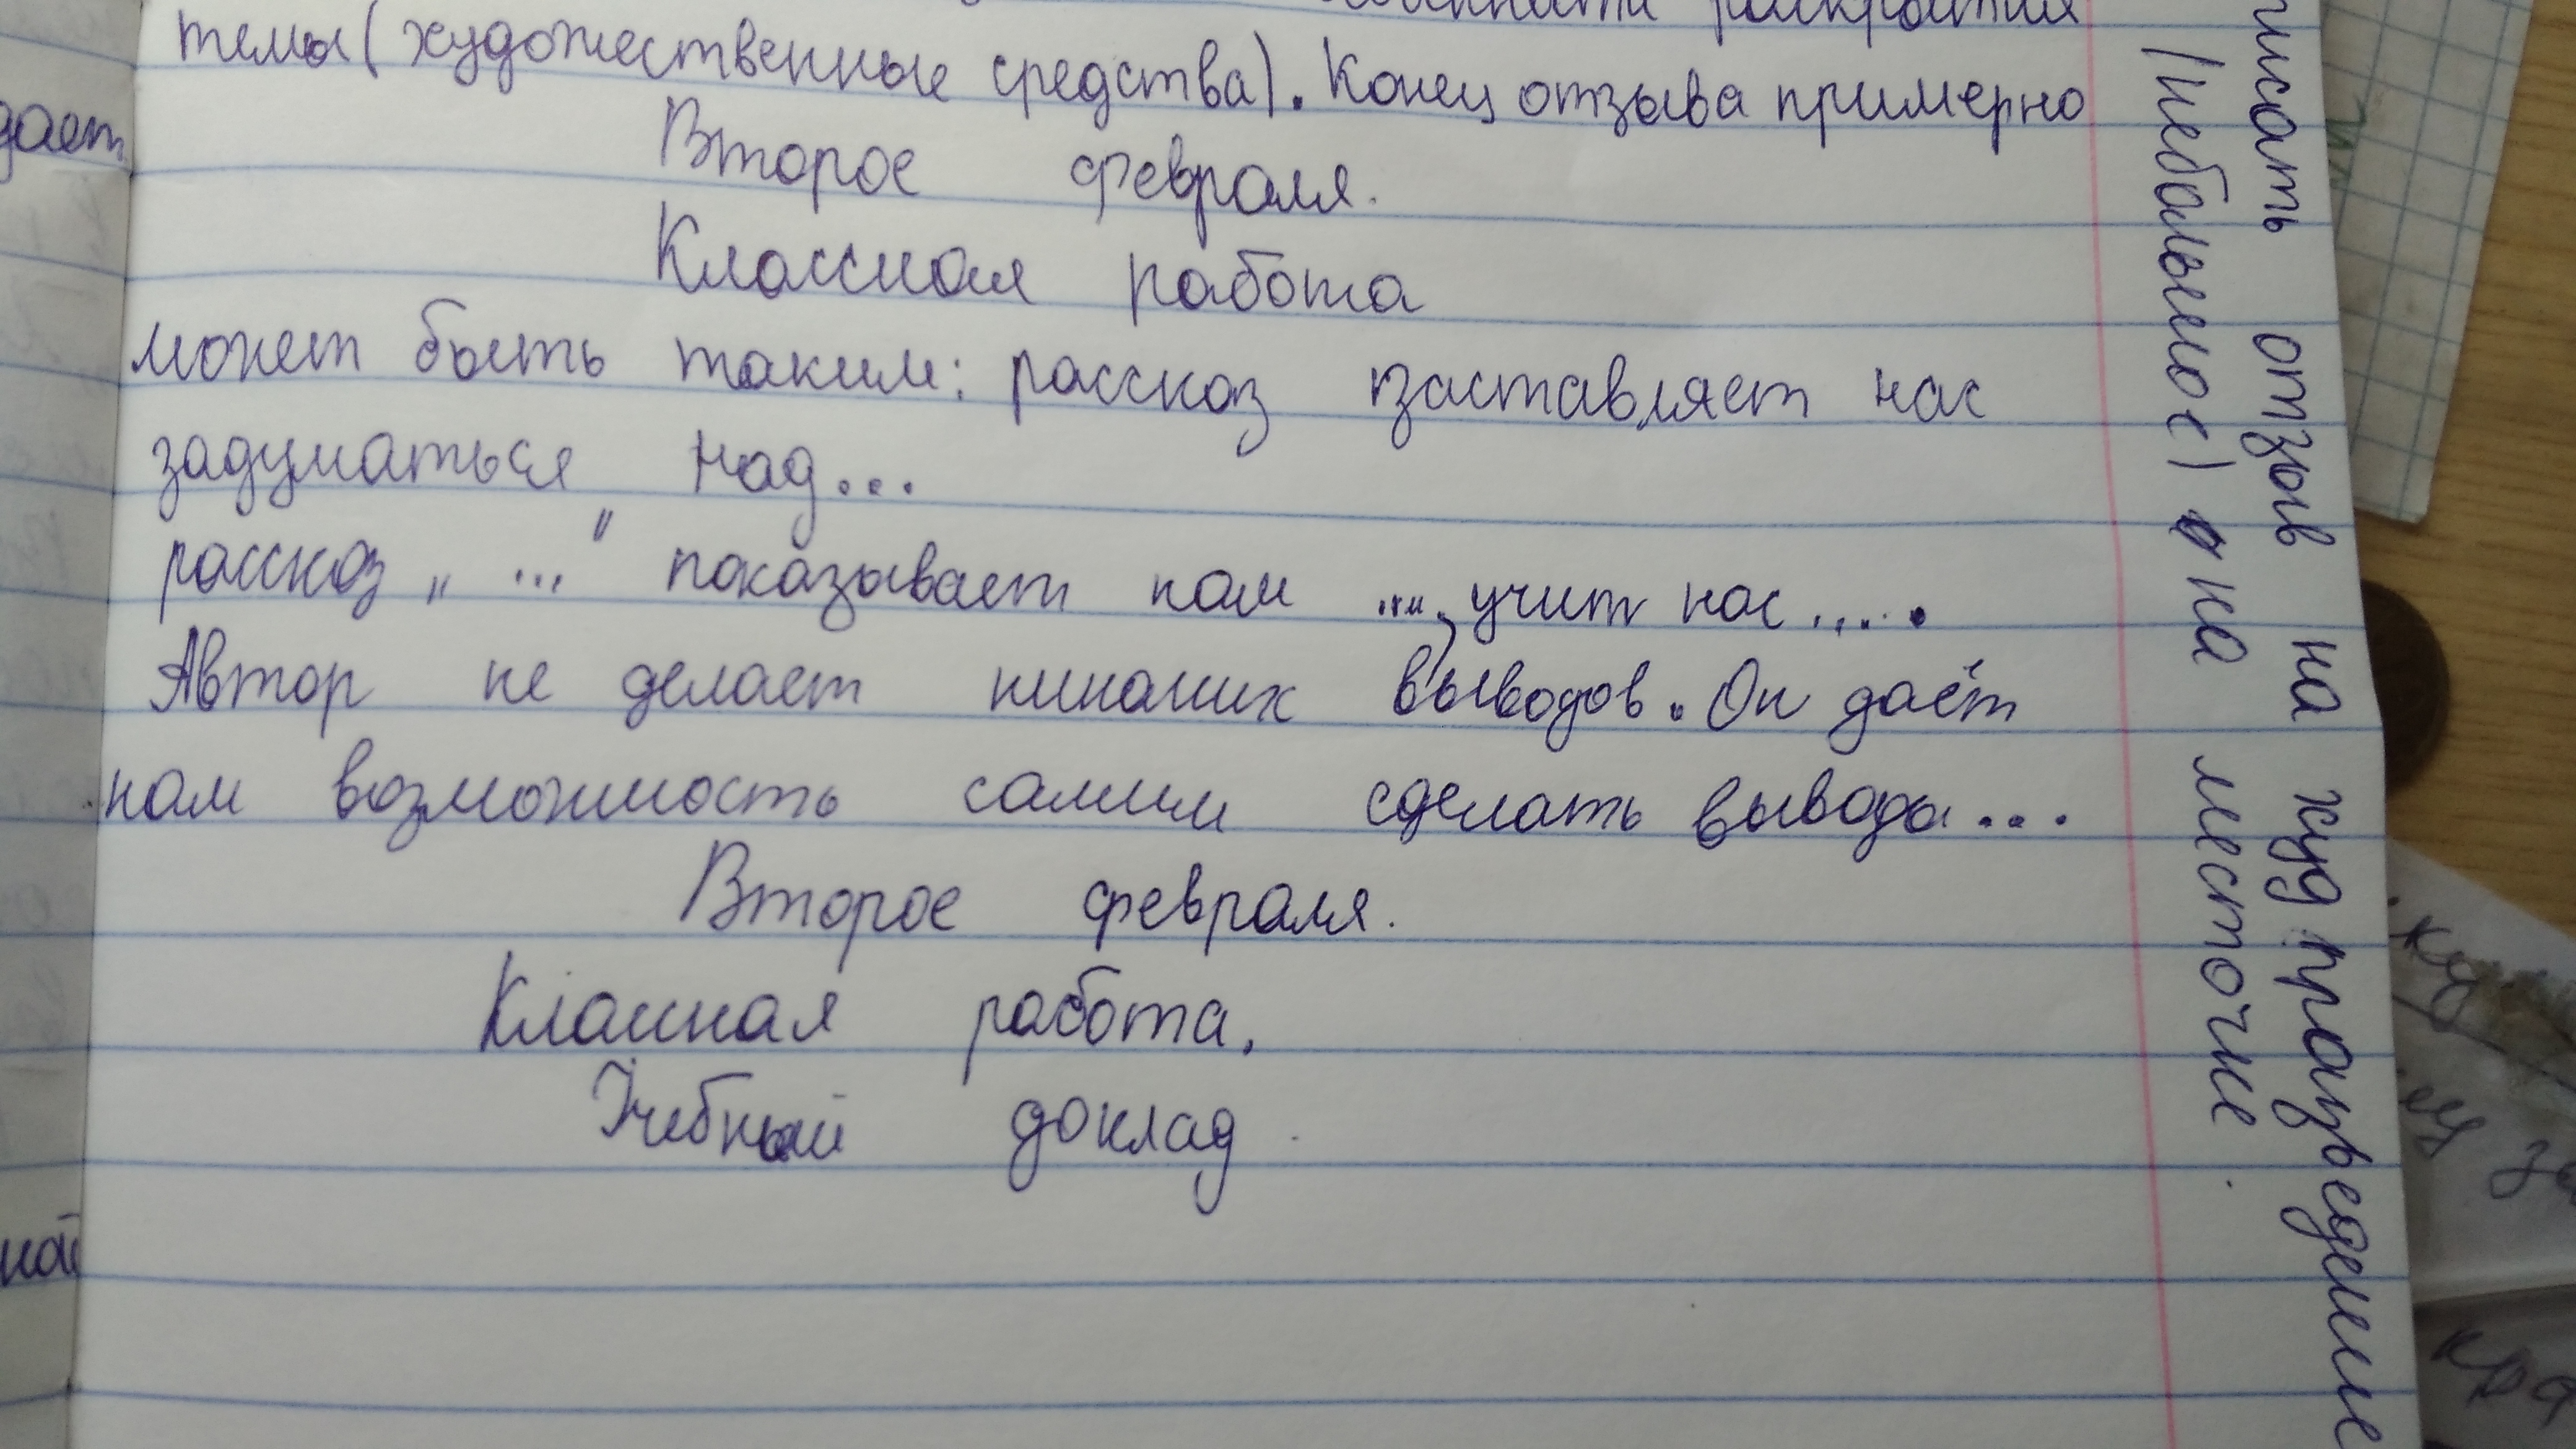 раскрытия
темы (художественные средства). Конец отзыва примерно
Второе февраля.
Классная работа
может быть таким: рассказ заставляет нас
задуматься над...
рассказ „ ... " показывает нам ...., учит нас .....
Автор не делает никаких выводов. Он даёт
нам возможность самим сделать выводы...
Второе февраля.
Классная работа.
Учебный доклад.
писать отзыв на худ произведение
(небольшое) на листочке.
дает
ной